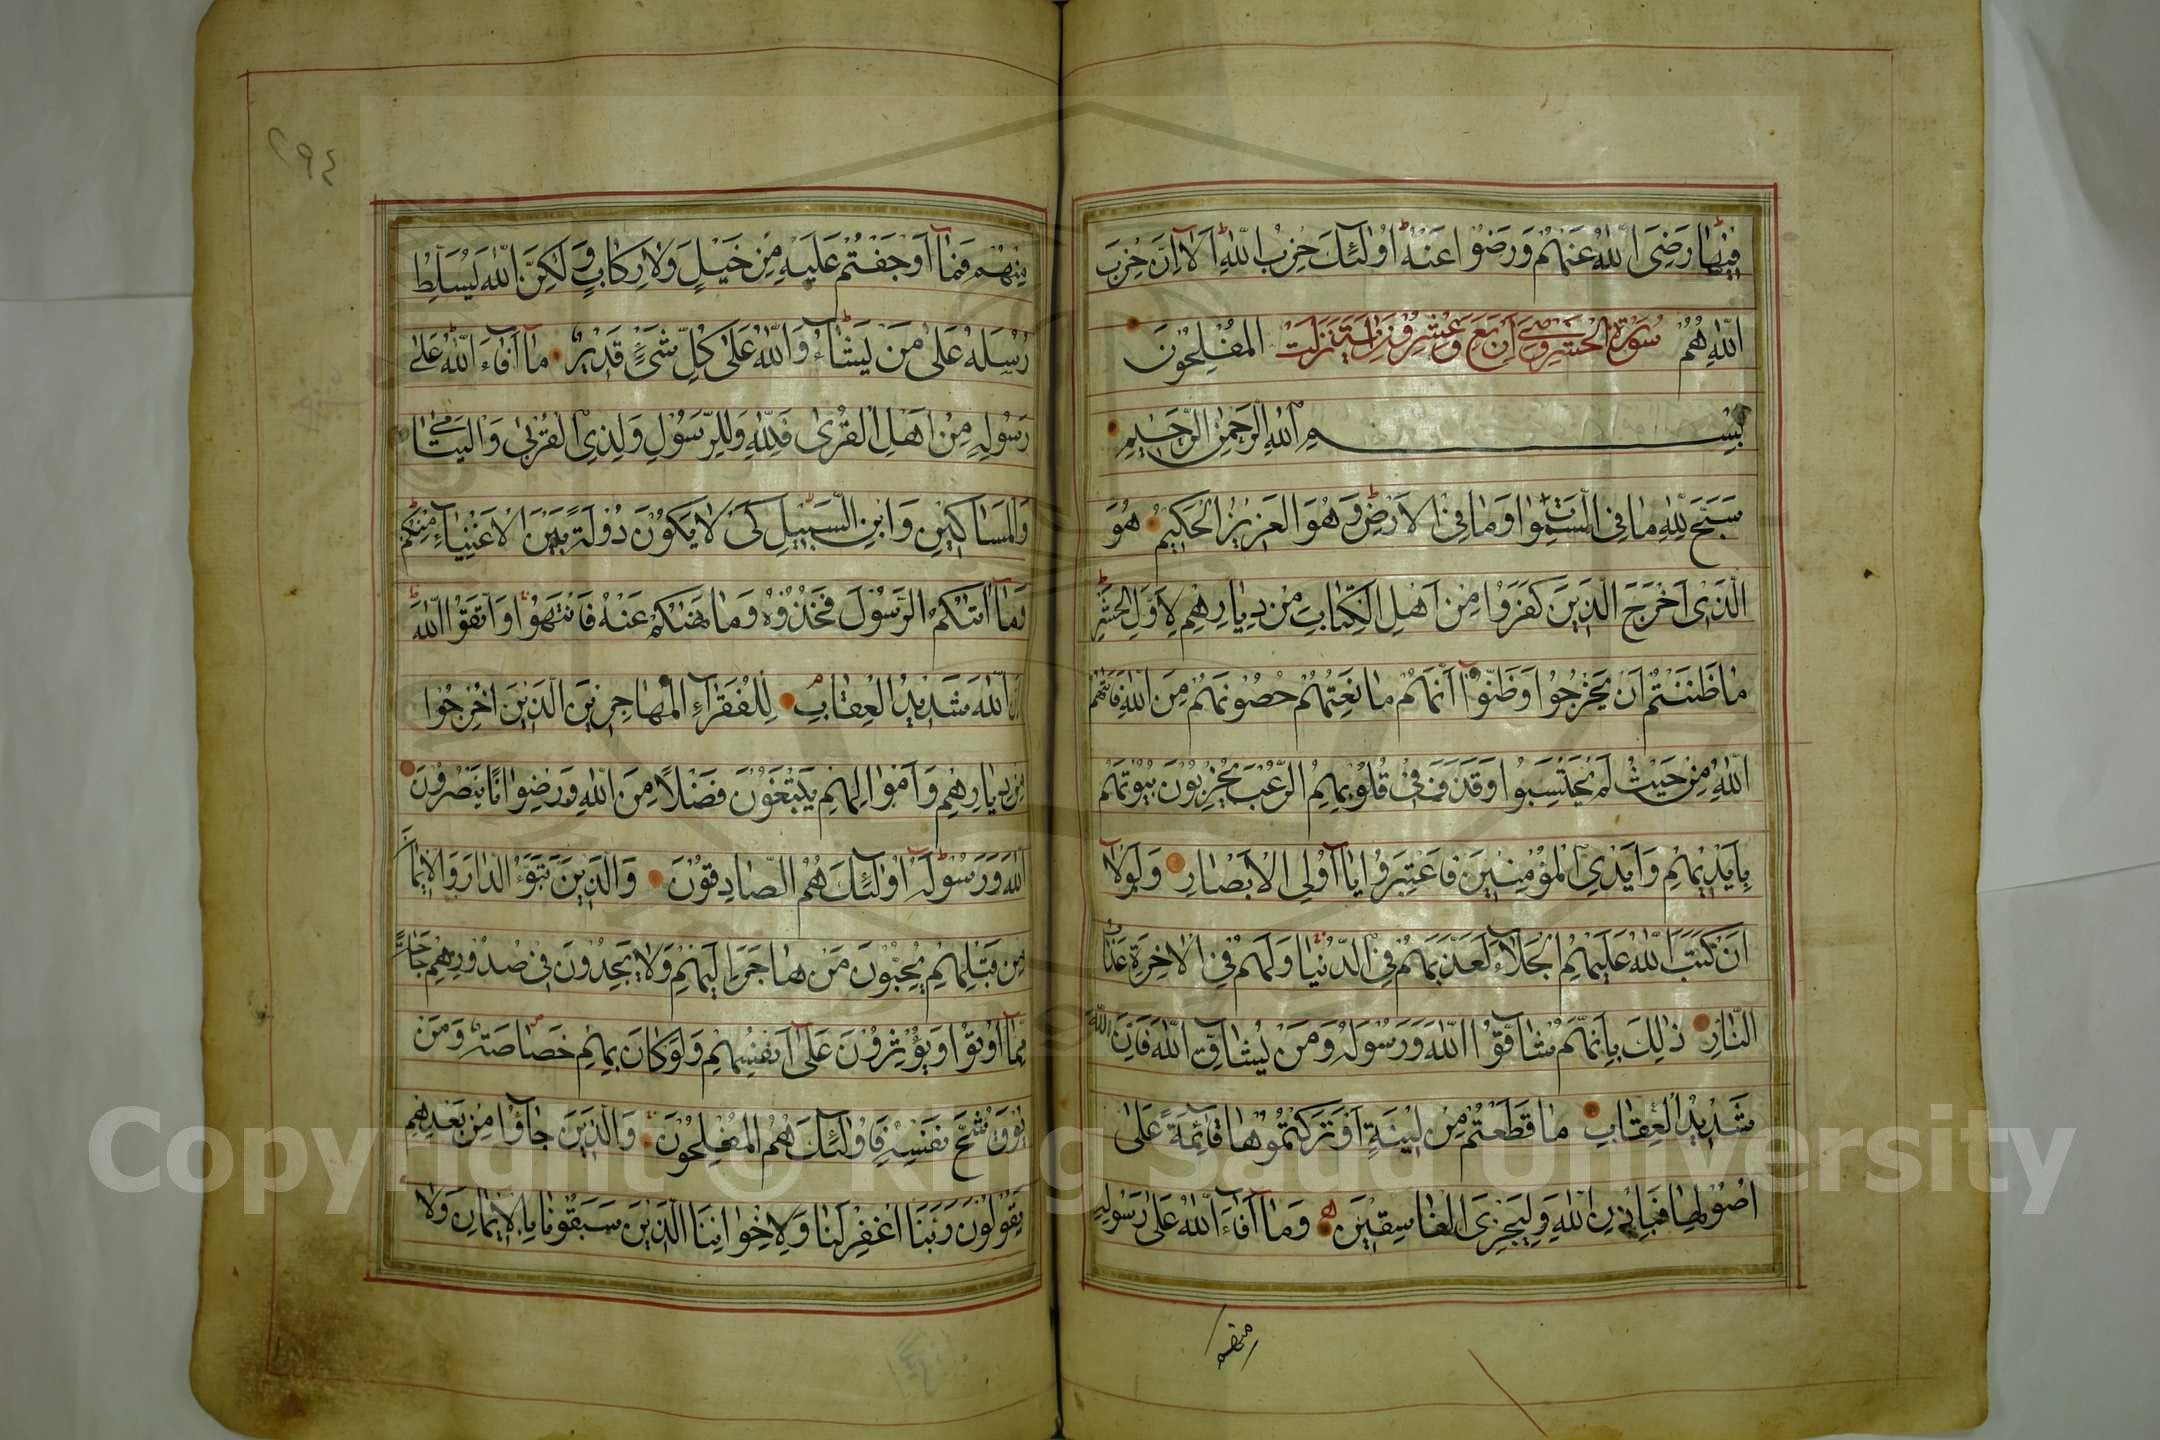 فِيْهَا رَضِيَ اللّٰهُ عَنْهُمْ وَرَضُوْا عَنْهُ اُولٰئِكَ حِزْبُ اللّٰهِ اَلَا اِنَّ حِزْبَ
اللّٰهِ هُمُ الْمُفْلِحُوْنَ سُوْرَةُ الْحَشْرِ
بِسْمِ اللّٰهِ الرَّحْمٰنِ الرَّحِيْمِ
سَبَّحَ لِلّٰهِ مَا فِي السَّمٰوَاتِ وَمَا فِي الْاَرْضِ وَهُوَ الْعَزِيْزُ الْحَكِيْمُ هُوَ
الَّذِيْ اَخْرَجَ الَّذِيْنَ كَفَرُوْا مِنْ اَهْلِ الْكِتَابِ مِنْ دِيَارِهِمْ لِاَوَّلِ الْحَشْرِ
مَا ظَنَنْتُمْ اَنْ يَخْرُجُوْا وَظَنُّوْا اَنَّهُمْ مَانِعَتُهُمْ حُصُوْنُهُمْ مِنَ اللّٰهِ فَاَتٰهُمُ
اللّٰهُ مِنْ حَيْثُ لَمْ يَحْتَسِبُوْا وَقَذَفَ فِيْ قُلُوْبِهِمُ الرُّعْبَ يُخْرِبُوْنَ بُيُوْتَهُمْ
بِاَيْدِيْهِمْ وَاَيْدِي الْمُؤْمِنِيْنَ فَاعْتَبِرُوْا يَا اُولِي الْاَبْصَارِ وَلَوْلَا
اَنْ كَتَبَ اللّٰهُ عَلَيْهِمُ الْجَلَاءَ لَعَذَّبَهُمْ فِي الدُّنْيَا وَلَهُمْ فِي الْاٰخِرَةِ عَذَابُ
النَّارِ ذٰلِكَ بِاَنَّهُمْ شَاقُّوا اللّٰهَ وَرَسُوْلَهُ وَمَنْ يُشَاقِّ اللّٰهَ فَاِنَّ اللّٰهَ
شَدِيْدُ الْعِقَابِ مَا قَطَعْتُمْ مِنْ لِيْنَةٍ اَوْ تَرَكْتُمُوْهَا قَائِمَةً عَلٰى
اُصُوْلِهَا فَبِاِذْنِ اللّٰهِ وَلِيُخْزِيَ الْفَاسِقِيْنَ وَمَا اَفَاءَ اللّٰهُ عَلٰى رَسُوْلِهِ
منهم
٢٩٤
مِنْهُمْ فَمَا اَوْجَفْتُمْ عَلَيْهِ مِنْ خَيْلٍ وَلَا رِكَابٍ وَلٰكِنَّ اللّٰهَ يُسَلِّطُ
رُسُلَهُ عَلٰى مَنْ يَشَاءُ وَاللّٰهُ عَلٰى كُلِّ شَيْءٍ قَدِيْرٌ مَا اَفَاءَ اللّٰهُ عَلٰى
رَسُوْلِهِ مِنْ اَهْلِ الْقُرٰى فَلِلّٰهِ وَلِلرَّسُوْلِ وَلِذِي الْقُرْبٰى وَالْيَتَامٰى
وَالْمَسَاكِيْنِ وَابْنِ السَّبِيْلِ كَيْ لَا يَكُوْنَ دُوْلَةً بَيْنَ الْاَغْنِيَاءِ مِنْكُمْ
وَمَا اٰتٰىكُمُ الرَّسُوْلُ فَخُذُوْهُ وَمَا نَهٰىكُمْ عَنْهُ فَانْتَهُوْا وَاتَّقُوا اللّٰهَ
اِنَّ اللّٰهَ شَدِيْدُ الْعِقَابِ لِلْفُقَرَاءِ الْمُهَاجِرِيْنَ الَّذِيْنَ اُخْرِجُوْا
مِنْ دِيَارِهِمْ وَاَمْوَالِهِمْ يَبْتَغُوْنَ فَضْلًا مِنَ اللّٰهِ وَرِضْوَانًا يَنْصُرُوْنَ
اللّٰهَ وَرَسُوْلَهُ اُولٰئِكَ هُمُ الصَّادِقُوْنَ وَالَّذِيْنَ تَبَوَّؤُ الدَّارَ وَالْاِيْمَانَ
مِنْ قَبْلِهِمْ يُحِبُّوْنَ مَنْ هَاجَرَ اِلَيْهِمْ وَلَا يَجِدُوْنَ فِيْ صُدُوْرِهِمْ حَاجَةً
مِمَّا اُوْتُوْا وَيُؤْثِرُوْنَ عَلٰى اَنْفُسِهِمْ وَلَوْ كَانَ بِهِمْ خَصَاصَةٌ وَمَنْ
يُوْقَ شُحَّ نَفْسِهِ فَاُولٰئِكَ هُمُ الْمُفْلِحُوْنَ وَالَّذِيْنَ جَاؤُا مِنْ بَعْدِهِمْ
يَقُوْلُوْنَ رَبَّنَا اغْفِرْ لَنَا وَلِاِخْوَانِنَا الَّذِيْنَ سَبَقُوْنَا بِالْاِيْمَانِ وَلَا
Copyright © King Saud University